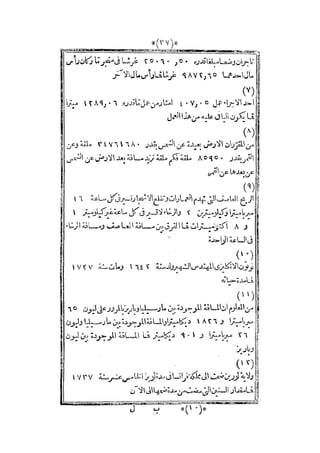 *(٣٧)*
تاجران وضعا مبلغا قدره ٥٠ ر ٢٥٠٦٠ غرشا فى متجر ما وكان رأس
مال احدهما ٦٥ ر ٩٨٧٢ غرشا فما رأس مال الآخر
(٧)
احد الاجراء عمل ٠٥ ر ٤٠٧ امتار من عمل ما قدره ٠٦ ر ١٢٨٩ ميترا
فما يكون باقيا عليه من هذا العمل
(٨)
من المقررات ان الارض بعيدة عن الشمس بقدر ٣٤٧٦١٦٨٠ ملقة وعن
القمر بقدر ٨٥٩٥٠ ملقة فكم ملقة تزيد مسافة بعد الارض عن الشمس
عن بعدها عن القمر
(٩)
الريح العاصف التى تهدم العمارات وتقلع الاشجار تسير فى كل ساعة ١٦
ميريا ميترا وكيلوميترين ٢ والرخاء لا تسير فى كل ساعة غير كيلوميتر ١
و ٨ اكتوميترات فما الفرق بين مسافة العاصف ومسافة الرخاء
فى الساعة الواحدة
(١٠)
نوتون الانكليزى المهندس الشهير ولد سنة ١٦٤٢ ومات سنة ١٧٢٧
فما مدة حياته
(١١)
من المعلوم ان المسافة الموجودة بين مارسيليا وباريز بالمرور على ليون ٦٥
ميريا ميتر و ١٨٢٦ ديكاميتر والمسافة الموجودة بين مارسيليا وليون
٢٦ ميريا ميتر و ٩٠١ ديكاميتر فما المسافة الموجودة بين ليون
وباريز
(١٢)
ولاية لورين ضمت الى مملكة فرانسا فى مدة لويز الخامس عشر سنة ١٧٣٧
فما مقدار السنين التى مضت من مدة ضمها الى الآن
*(١٠)* ب ل